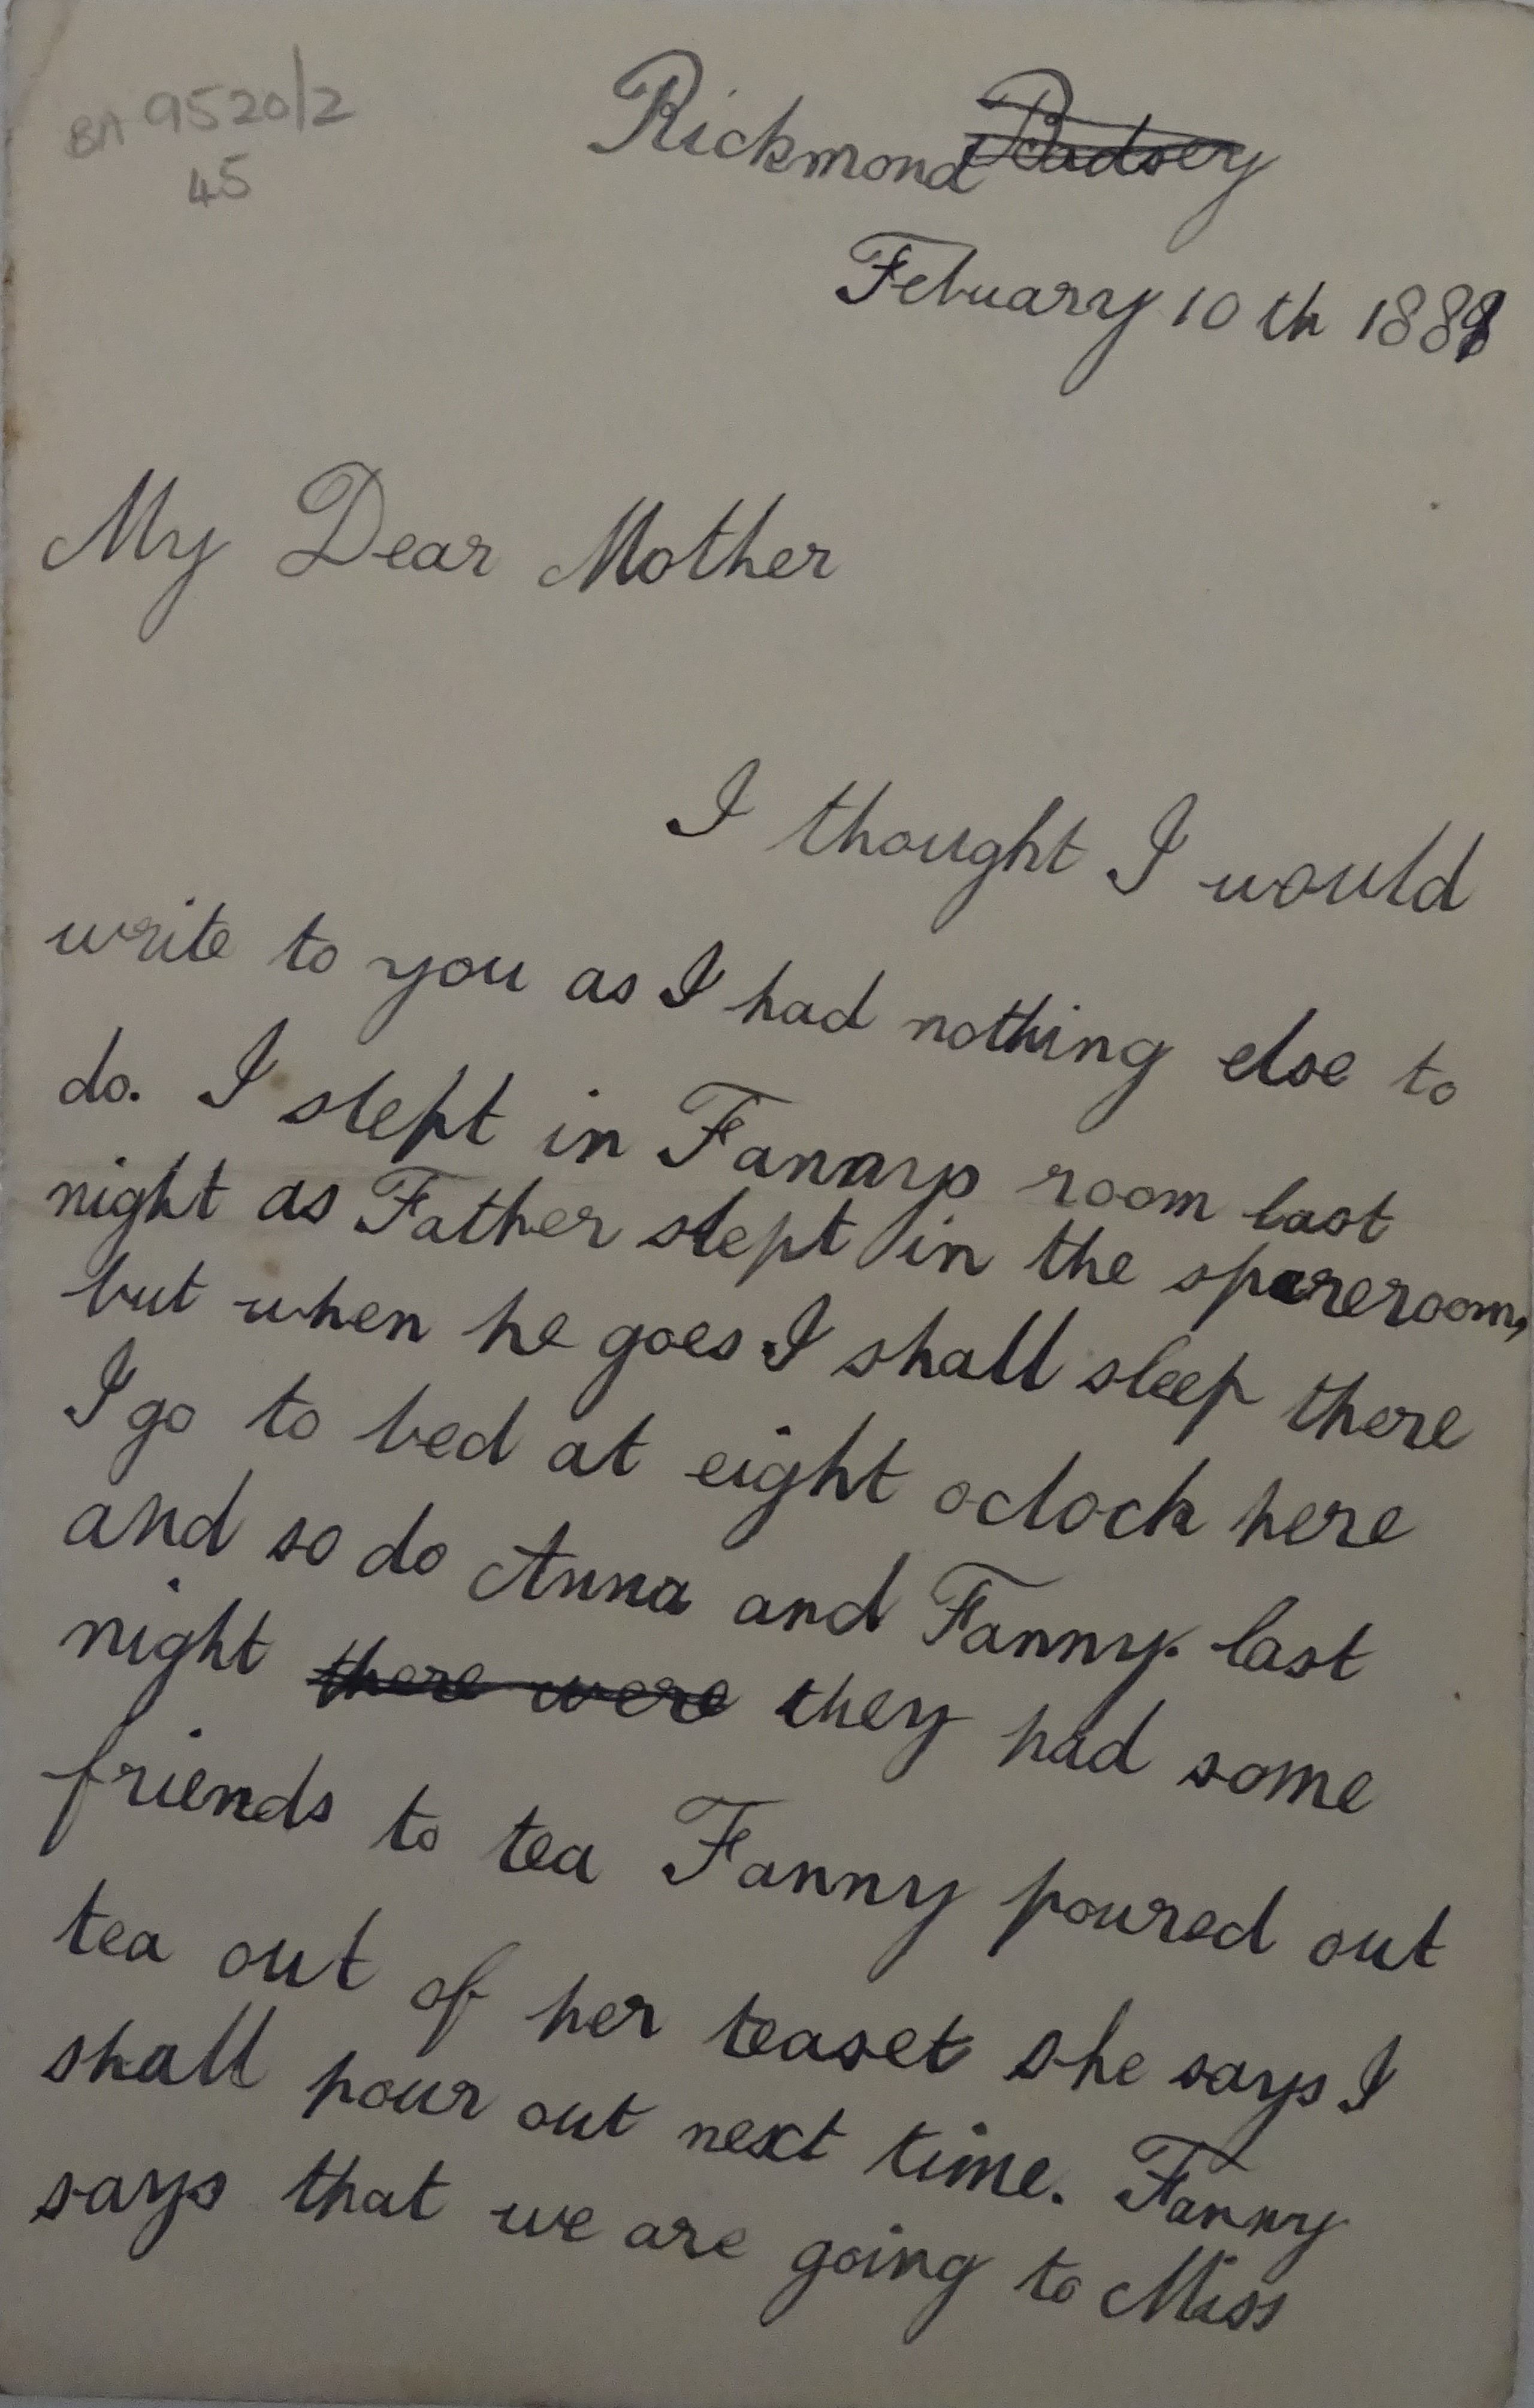 BA 9520/2
45
Rickmond Badsey
Febuary 10 th 1888
My Dear Mother
I thought I would
write to you as I had nothing else to
do. I slept in Fannys room last
night as Father slept in the spareroom,
but when he goes I shall sleep there
I go to bed at eight oclock here
and so do Anna and Fanny. last
night there were they had some
friends to tea Fanny poured out
tea out of her teaset she says I
shall pour out next time. Fanny
says that we are going to Miss